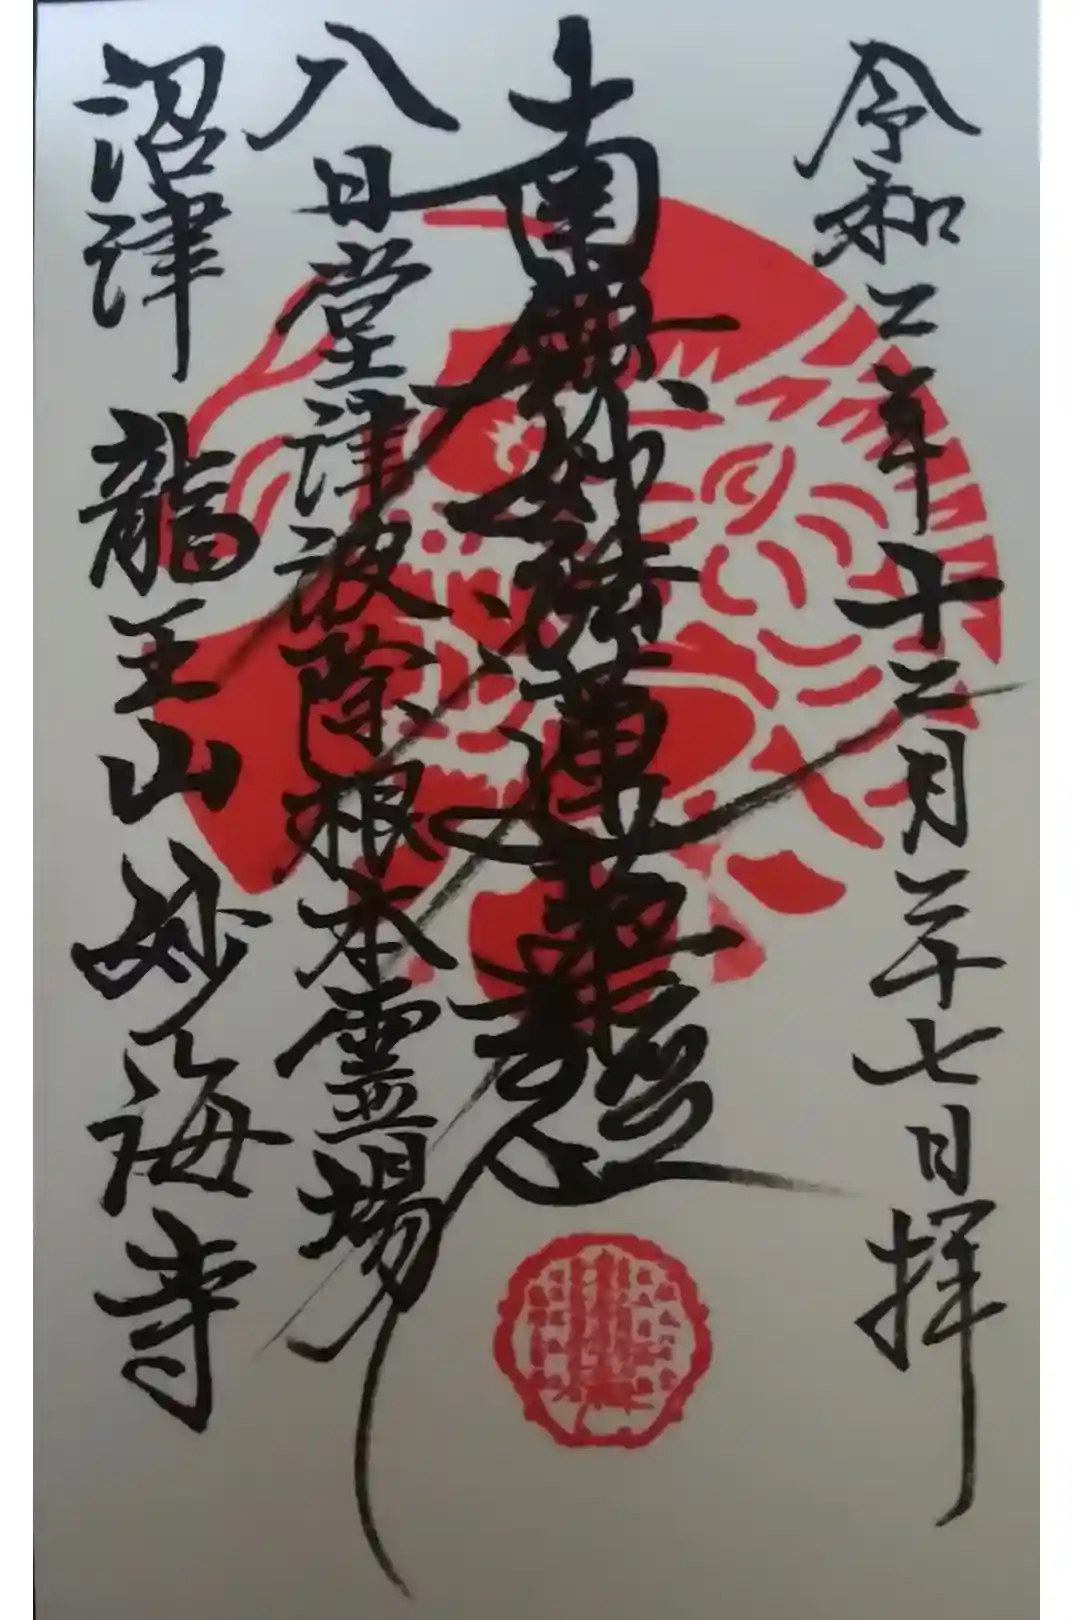 令和二年十二月二十七日拝
南無妙法蓮華経
八日堂津波除根本霊場
沼津 龍王山妙海寺